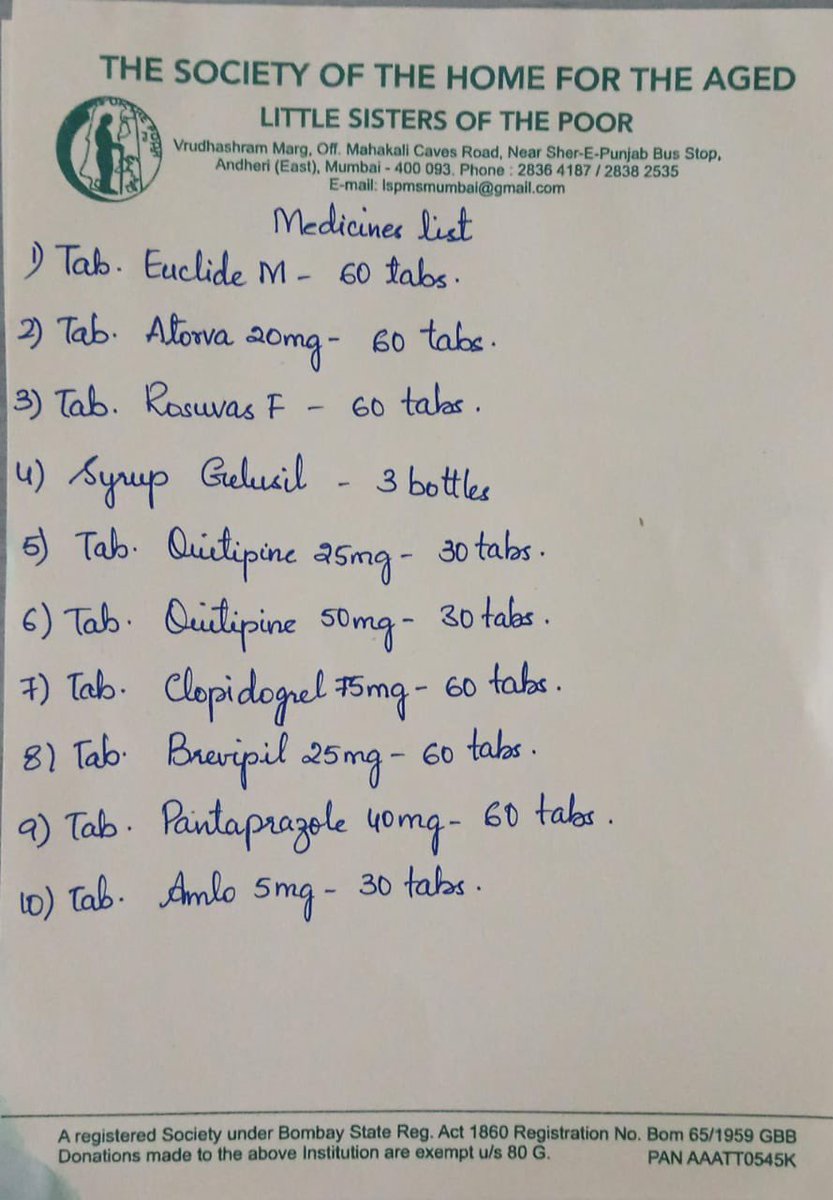 THE SOCIETY OF THE HOME FOR THE AGED
LITTLE SISTERS OF THE POOR
Vrudhashram Marg, Off. Mahakali Caves Road, Near Sher-E-Punjab Bus Stop,
Andheri (East), Mumbai - 400 093. Phone : 2836 4187 / 2838 2535
E-mail: lspmsmumbai@gmail.com
Medicines list
1) Tab. Euclide M - 60 tabs.
2) Tab. Atorva 20mg - 60 tabs.
3) Tab. Rosuvas F - 60 tabs.
4) Syrup Gelusil - 3 bottles
5) Tab. Quitipine 25mg - 30 tabs.
6) Tab. Quitipine 50mg - 30 tabs.
7) Tab. Clopidogrel 75mg - 60 tabs.
8) Tab. Brevipil 25mg - 60 tabs.
9) Tab. Pantaprazole 40mg - 60 tabs.
10) Tab. Amlo 5mg - 30 tabs.
A registered Society under Bombay State Reg. Act 1860 Registration No. Bom 65/1959 GBB
Donations made to the above Institution are exempt u/s 80 G. PAN AAATT0545K